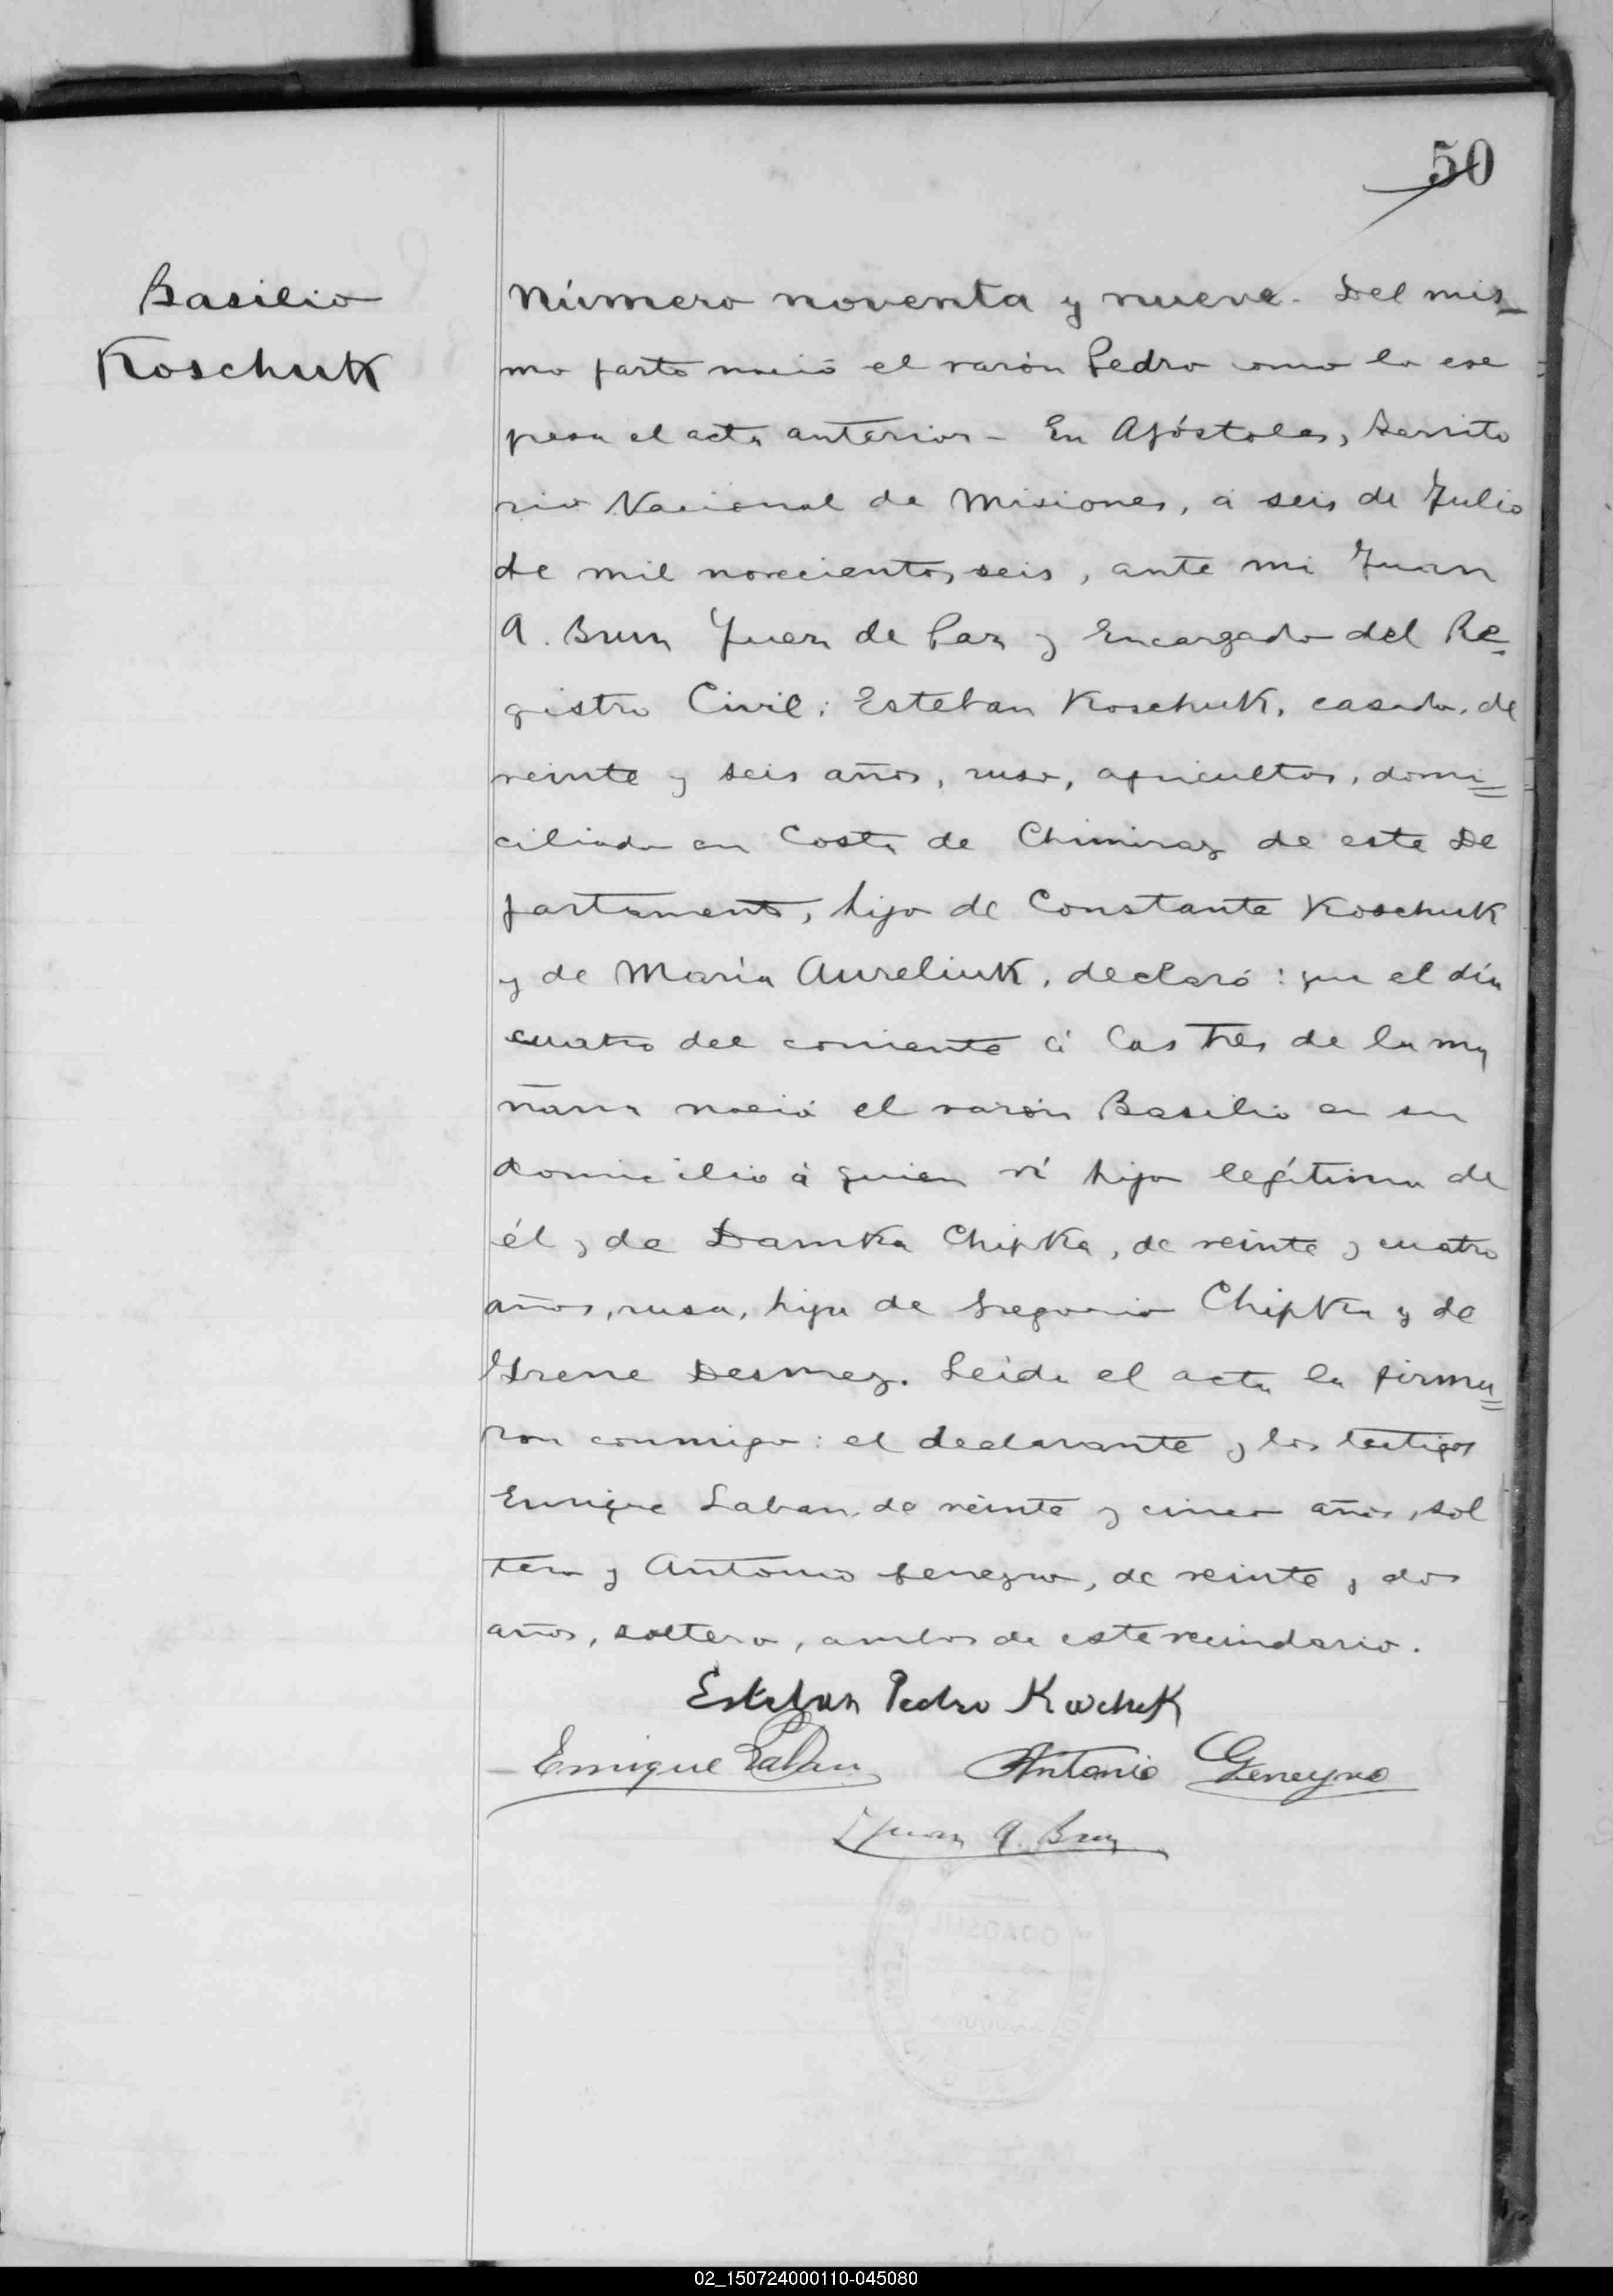 50
Basilio
Koschuk
Número noventa y nueve. Del mis
mo parto nació el varón Pedro como lo exe
presa el acta anterior - En Apóstoles, Territo
rio Nacional de Misiones, á seis de Julio
de mil novecientos seis, ante mi Juan
A. Brun Juez de Paz y Encargado del Re=
gistro Civil: Esteban Koschuk, casado, de
veinte y seis años, ruso, agricultor, domi=
ciliado en Costa de Chimiray de este De
partamento, hijo de Constante Koschuk
y de María Aureliuk, declaró: que el día
cuatro del corriente á las tres de la ma
ñana nació el varón Basilio en su
domicilio á quien ví hijo legítimo de
él y de Damka Chipka, de veinte y cuatro
años, rusa, hija de Gregorio Chipka y de
Irene Desmez. Leida el acta la firma=
ron conmigo: el declarante y los testigos
Enrique Laban, de veinte y cinco años, sol
tero y Antonio Geneyro, de veinte y dos
años, soltero, ambos de este vecindario.
Esteban Pedro Koschuk
Enrique Laban Antonio Geneyro
Juan A. Brun
02_150724000110-045080